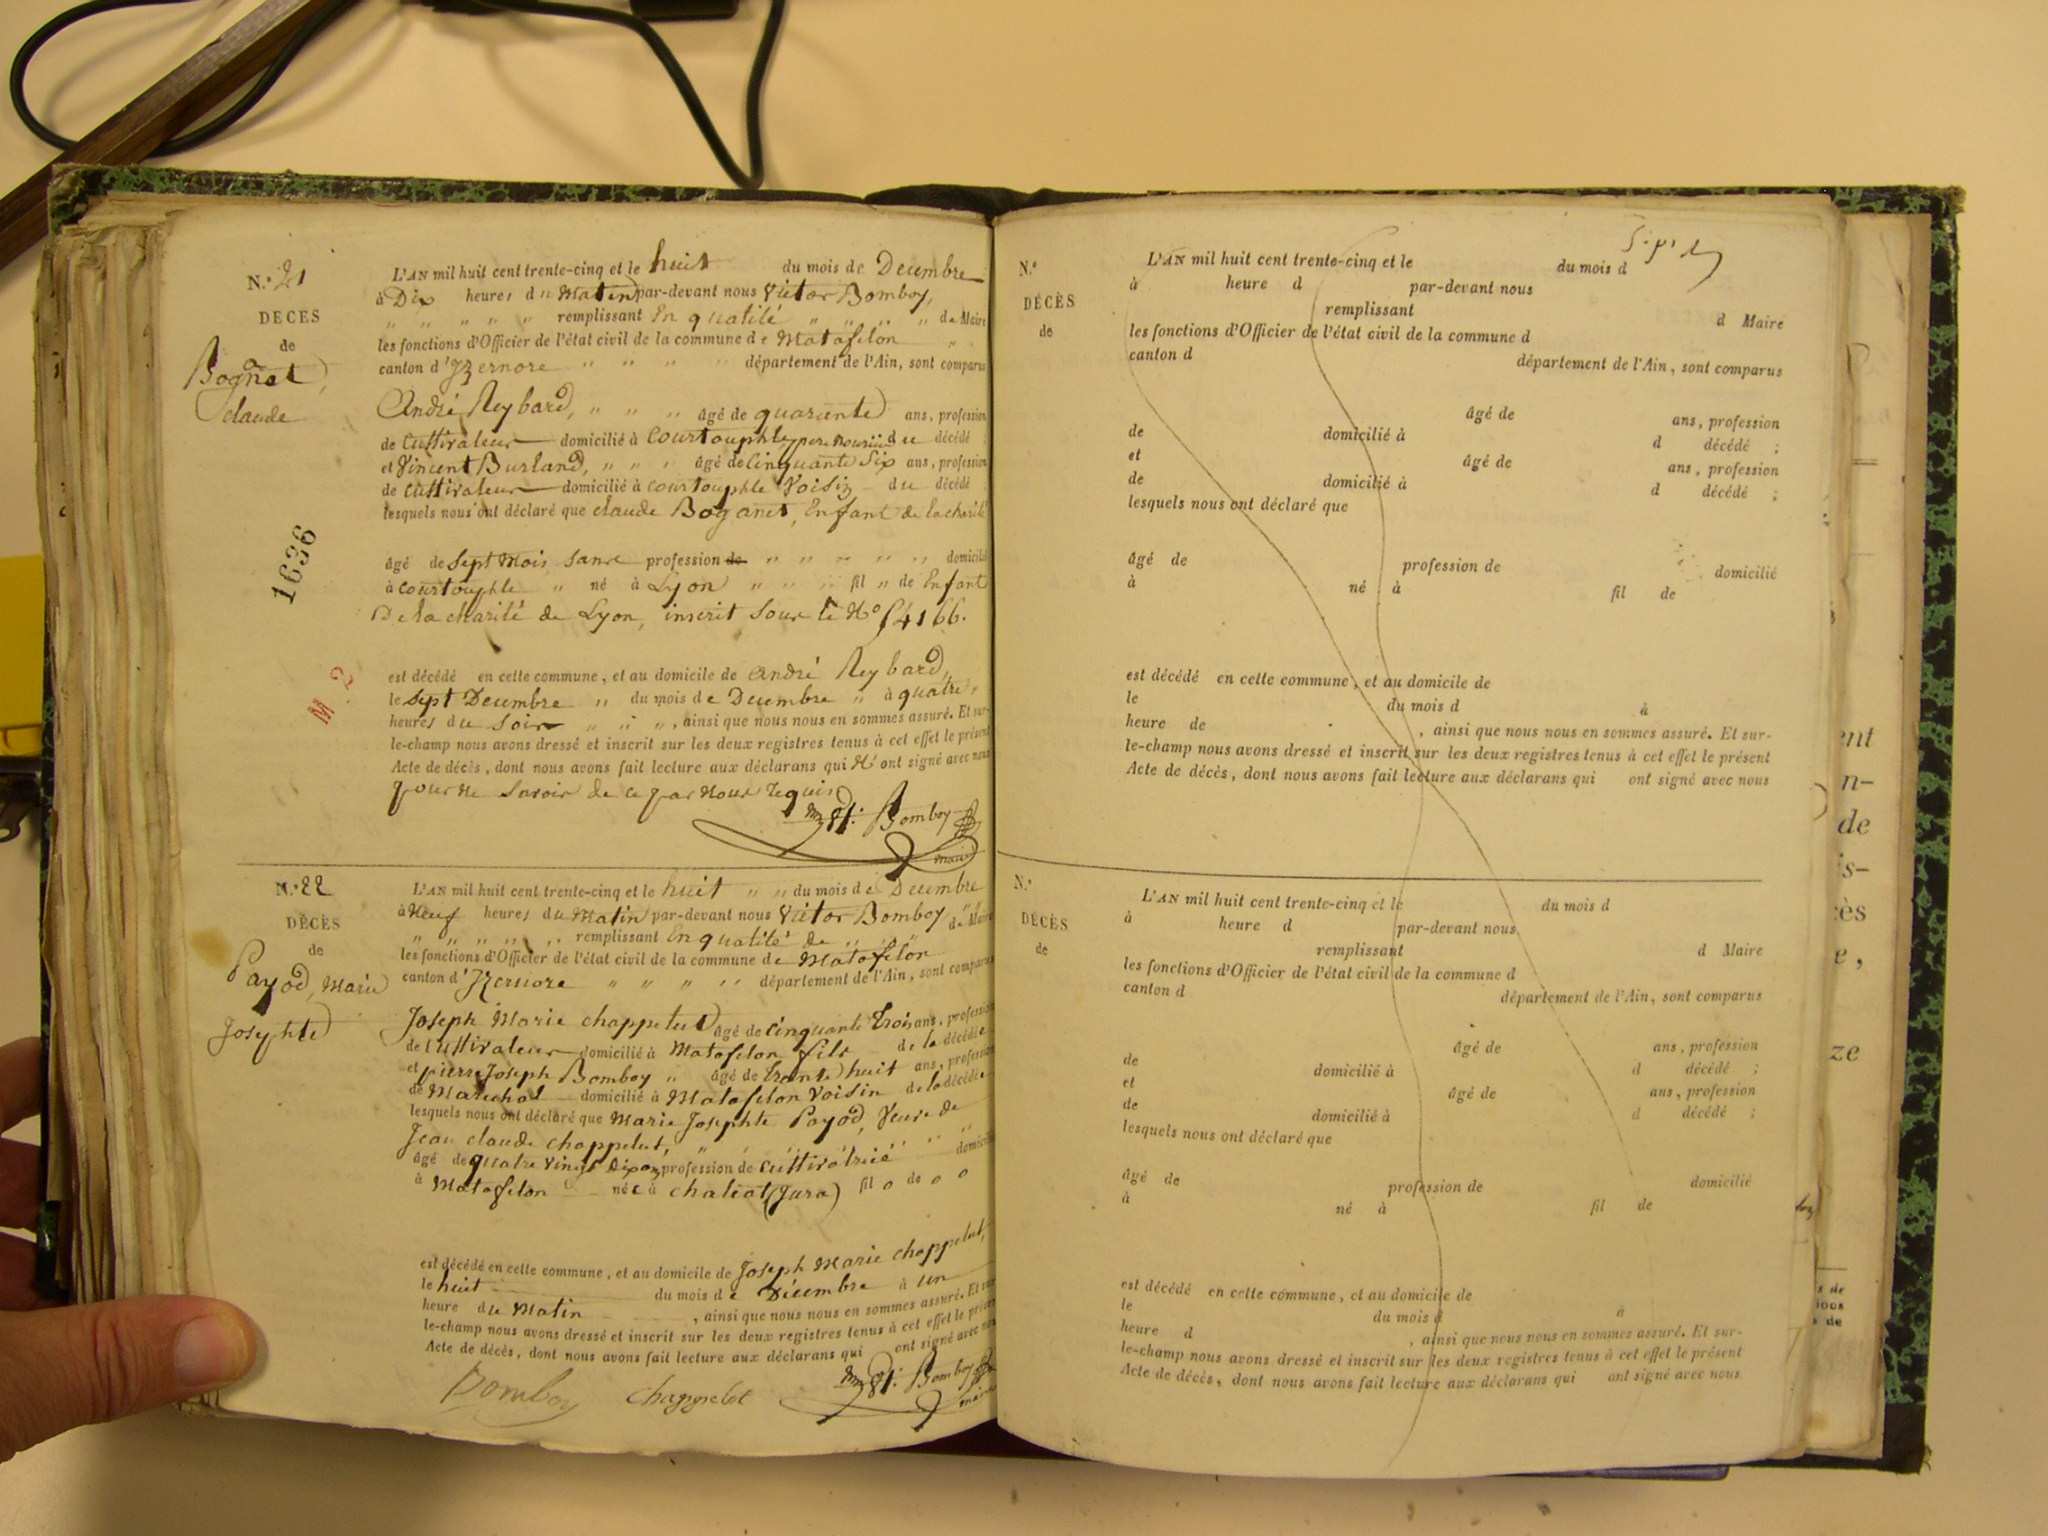 N.° 21
DECES
de
Boganet,
claude
L'AN mil huit cent trente-cinq et le huit du mois de Decembre
à Dix heures du Matin par-devant nous Victor Bomboy,
remplissant En qualité de Maire
les fonctions d'Officier de l'état civil de la commune de Matafelon
canton d'Izernore département de l'Ain, sont comparus
André Reybard, âgé de quarante ans, profession
de Cultivateur domicilié à Courtouphle, pere nouricié du décédé
et Vincent Burland, âgé de Cinquante Six ans, profession
de Cultivateur domicilié à Courtouphle Voisin du décédé
lesquels nous ont déclaré que claude Boganet, Enfant de la charité
âgé de Sept Mois sans profession de domicilié
à Courtouphle né à Lyon fil de Enfant
De la charité de Lyon, inscrit Sous le N° 54166.
est décédé en cette commune, et au domicile de André Reybard,
le Sept Decembre du mois de Decembre à quatre
heures du Soir, ainsi que nous nous en sommes assuré. Et sur-
le-champ nous avons dressé et inscrit sur les deux registres tenus à cet effet le présent
Acte de décès, dont nous avons fait lecture aux déclarans qui N'ont signé avec nous
pour ne Savoir de ce par Nous requis
Bomboy
maire
1636
M 2
N.° 22
DÉCÈS
de
Payod, Marie
Josephte
L'AN mil huit cent trente-cinq et le huit du mois de Decembre
à Neuf heures du Matin par-devant nous Victor Bomboy
remplissant En qualité de de Maire
les fonctions d'Officier de l'état civil de la commune de Matafelon
canton d'Izernore département de l'Ain, sont comparus
Joseph Marie chappelut âgé de Cinquante Trois ans, profession
de Cultivateur domicilié à Matafelon fils de la décédée
et pierre Joseph Bomboy âgé de Trente huit ans, profession
de Marechal domicilié à Matafelon Voisin de la décédée
lesquels nous ont déclaré que Marie Josephte Payod, Veuve de
Jean claude chappelut,
âgé de quatre Vingt Dix ans profession de Cultivatrice domicilié
à Matafelon née à chaleat (Jura) fil o de o o
est décédé en cette commune, et au domicile de Joseph Marie chappelut,
le huit du mois de Décembre à un
heure du Matin, ainsi que nous nous en sommes assuré. Et sur-
le-champ nous avons dressé et inscrit sur les deux registres tenus à cet effet le présent
Acte de décès, dont nous avons fait lecture aux déclarans qui ont signé avec nous
Bomboy Chappelut Bomboy
maire
N.°
DÉCÈS
de
L'AN mil huit cent trente-cinq et le du mois d
à heure d par-devant nous
remplissant d Maire
les fonctions d'Officier de l'état civil de la commune d
canton d département de l'Ain, sont comparus
âgé de ans, profession
de domicilié à d décédé ;
et âgé de ans, profession
de domicilié à d décédé ;
lesquels nous ont déclaré que
âgé de profession de domicilié
à né à fil de
est décédé en cette commune, et au domicile de
le du mois d à
heure de , ainsi que nous nous en sommes assuré. Et sur-
le-champ nous avons dressé et inscrit sur les deux registres tenus à cet effet le présent
Acte de décès, dont nous avons fait lecture aux déclarans qui ont signé avec nous
N.°
DÉCÈS
de
L'AN mil huit cent trente-cinq et le du mois d
à heure d par-devant nous
remplissant d Maire
les fonctions d'Officier de l'état civil de la commune d
canton d département de l'Ain, sont comparus
âgé de ans, profession
de domicilié à d décédé ;
et âgé de ans, profession
de domicilié à d décédé ;
lesquels nous ont déclaré que
âgé de profession de domicilié
à né à fil de
est décédé en cette commune, et au domicile de
le du mois d à
heure d , ainsi que nous nous en sommes assuré. Et sur-
le-champ nous avons dressé et inscrit sur les deux registres tenus à cet effet le présent
Acte de décès, dont nous avons fait lecture aux déclarans qui ont signé avec nous